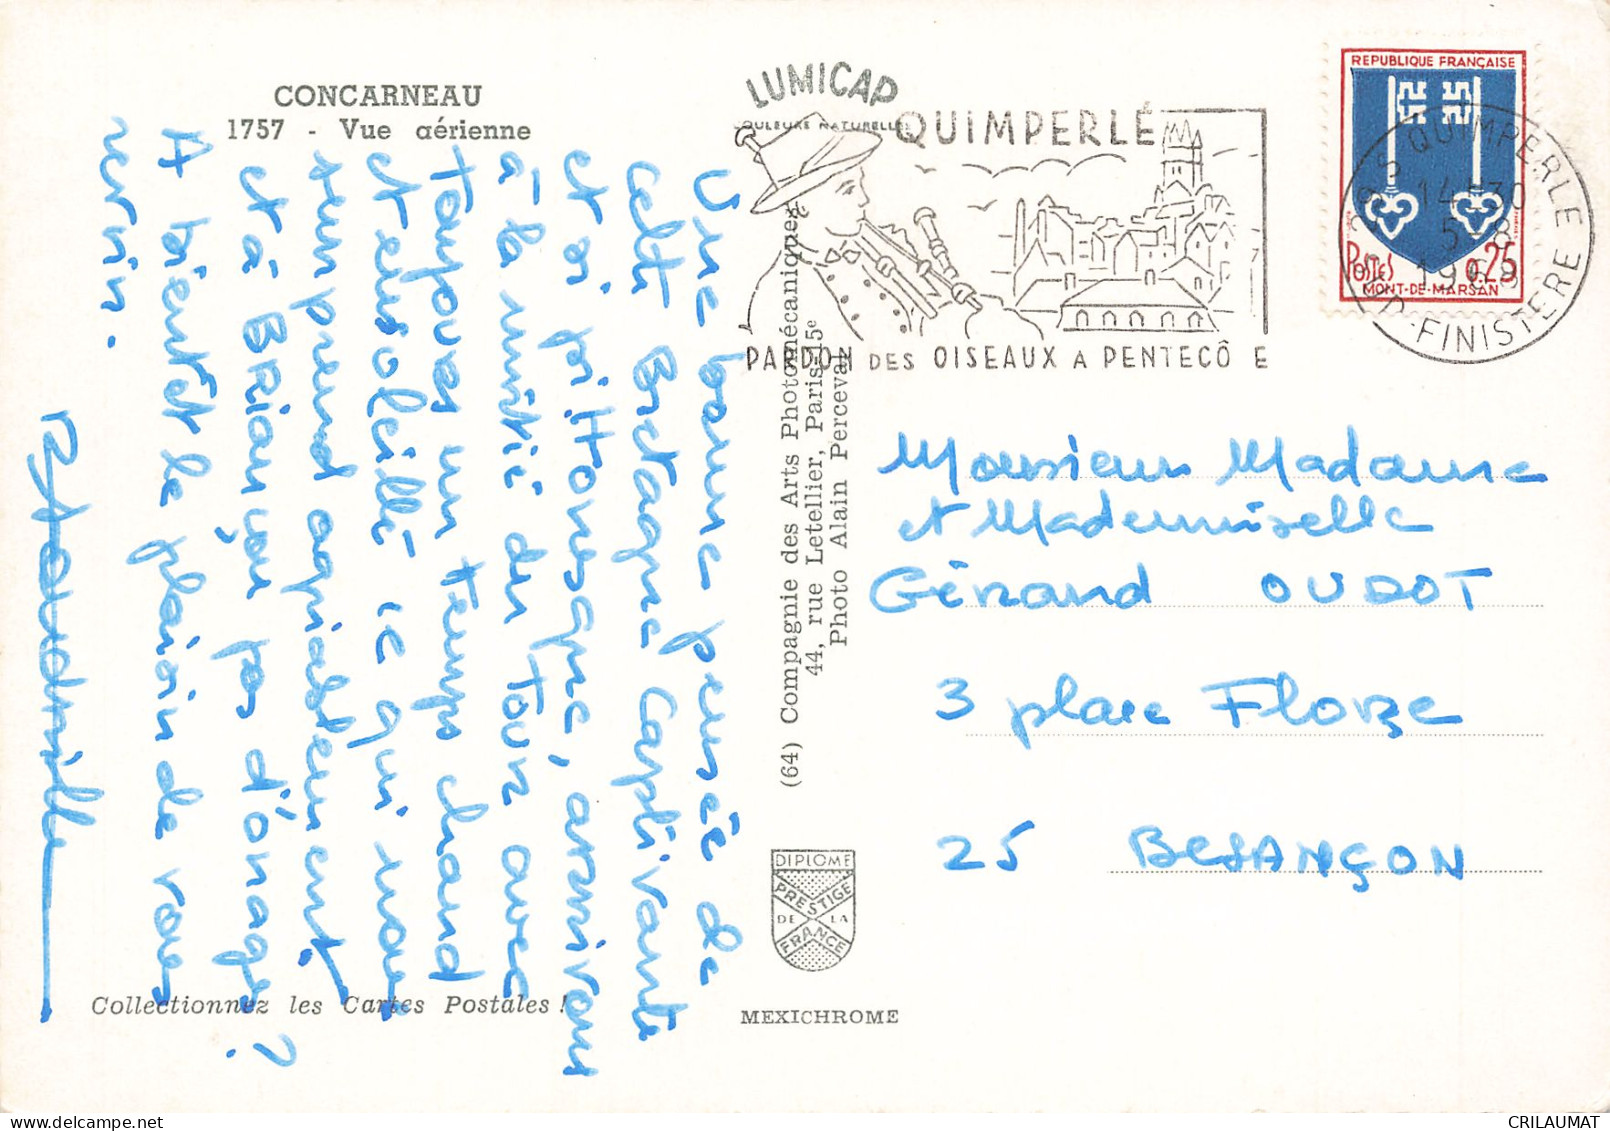 CONCARNEAU
1757 - Vue aérienne
LUMICAP
COULEURS NATURELLES
QUIMPERLÉ
PARDON DES OISEAUX A PENTECÔ E
REPUBLIQUE FRANÇAISE
POSTES 0,25
MONT-DE-MARSAN
QUIMPERLE
14 H 30
5-8
SUD-FINISTERE
Une bonne pensée de
cette Bretagne captivante
et si pittoresque, arrivons
à la moitié du Tour avec
Toujours un temps chaud
et ensoleillé ce qui nous
surprend agréablement,
et à BRIANÇON pas d'orages ?
A bientôt le plaisir de vous
revoir.
(64) Compagnie des Arts Photomécaniques
44, rue Letellier, Paris-15e
Photo Alain Perceval
Monsieur Madame
et Mademoiselle
Gérard OUDOT
3 place Flore
25 BESANÇON
DIPLOME
PRESTIGE
DE LA
FRANCE
Collectionnez les Cartes Postales !
MEXICHROME
CRILAUMAT